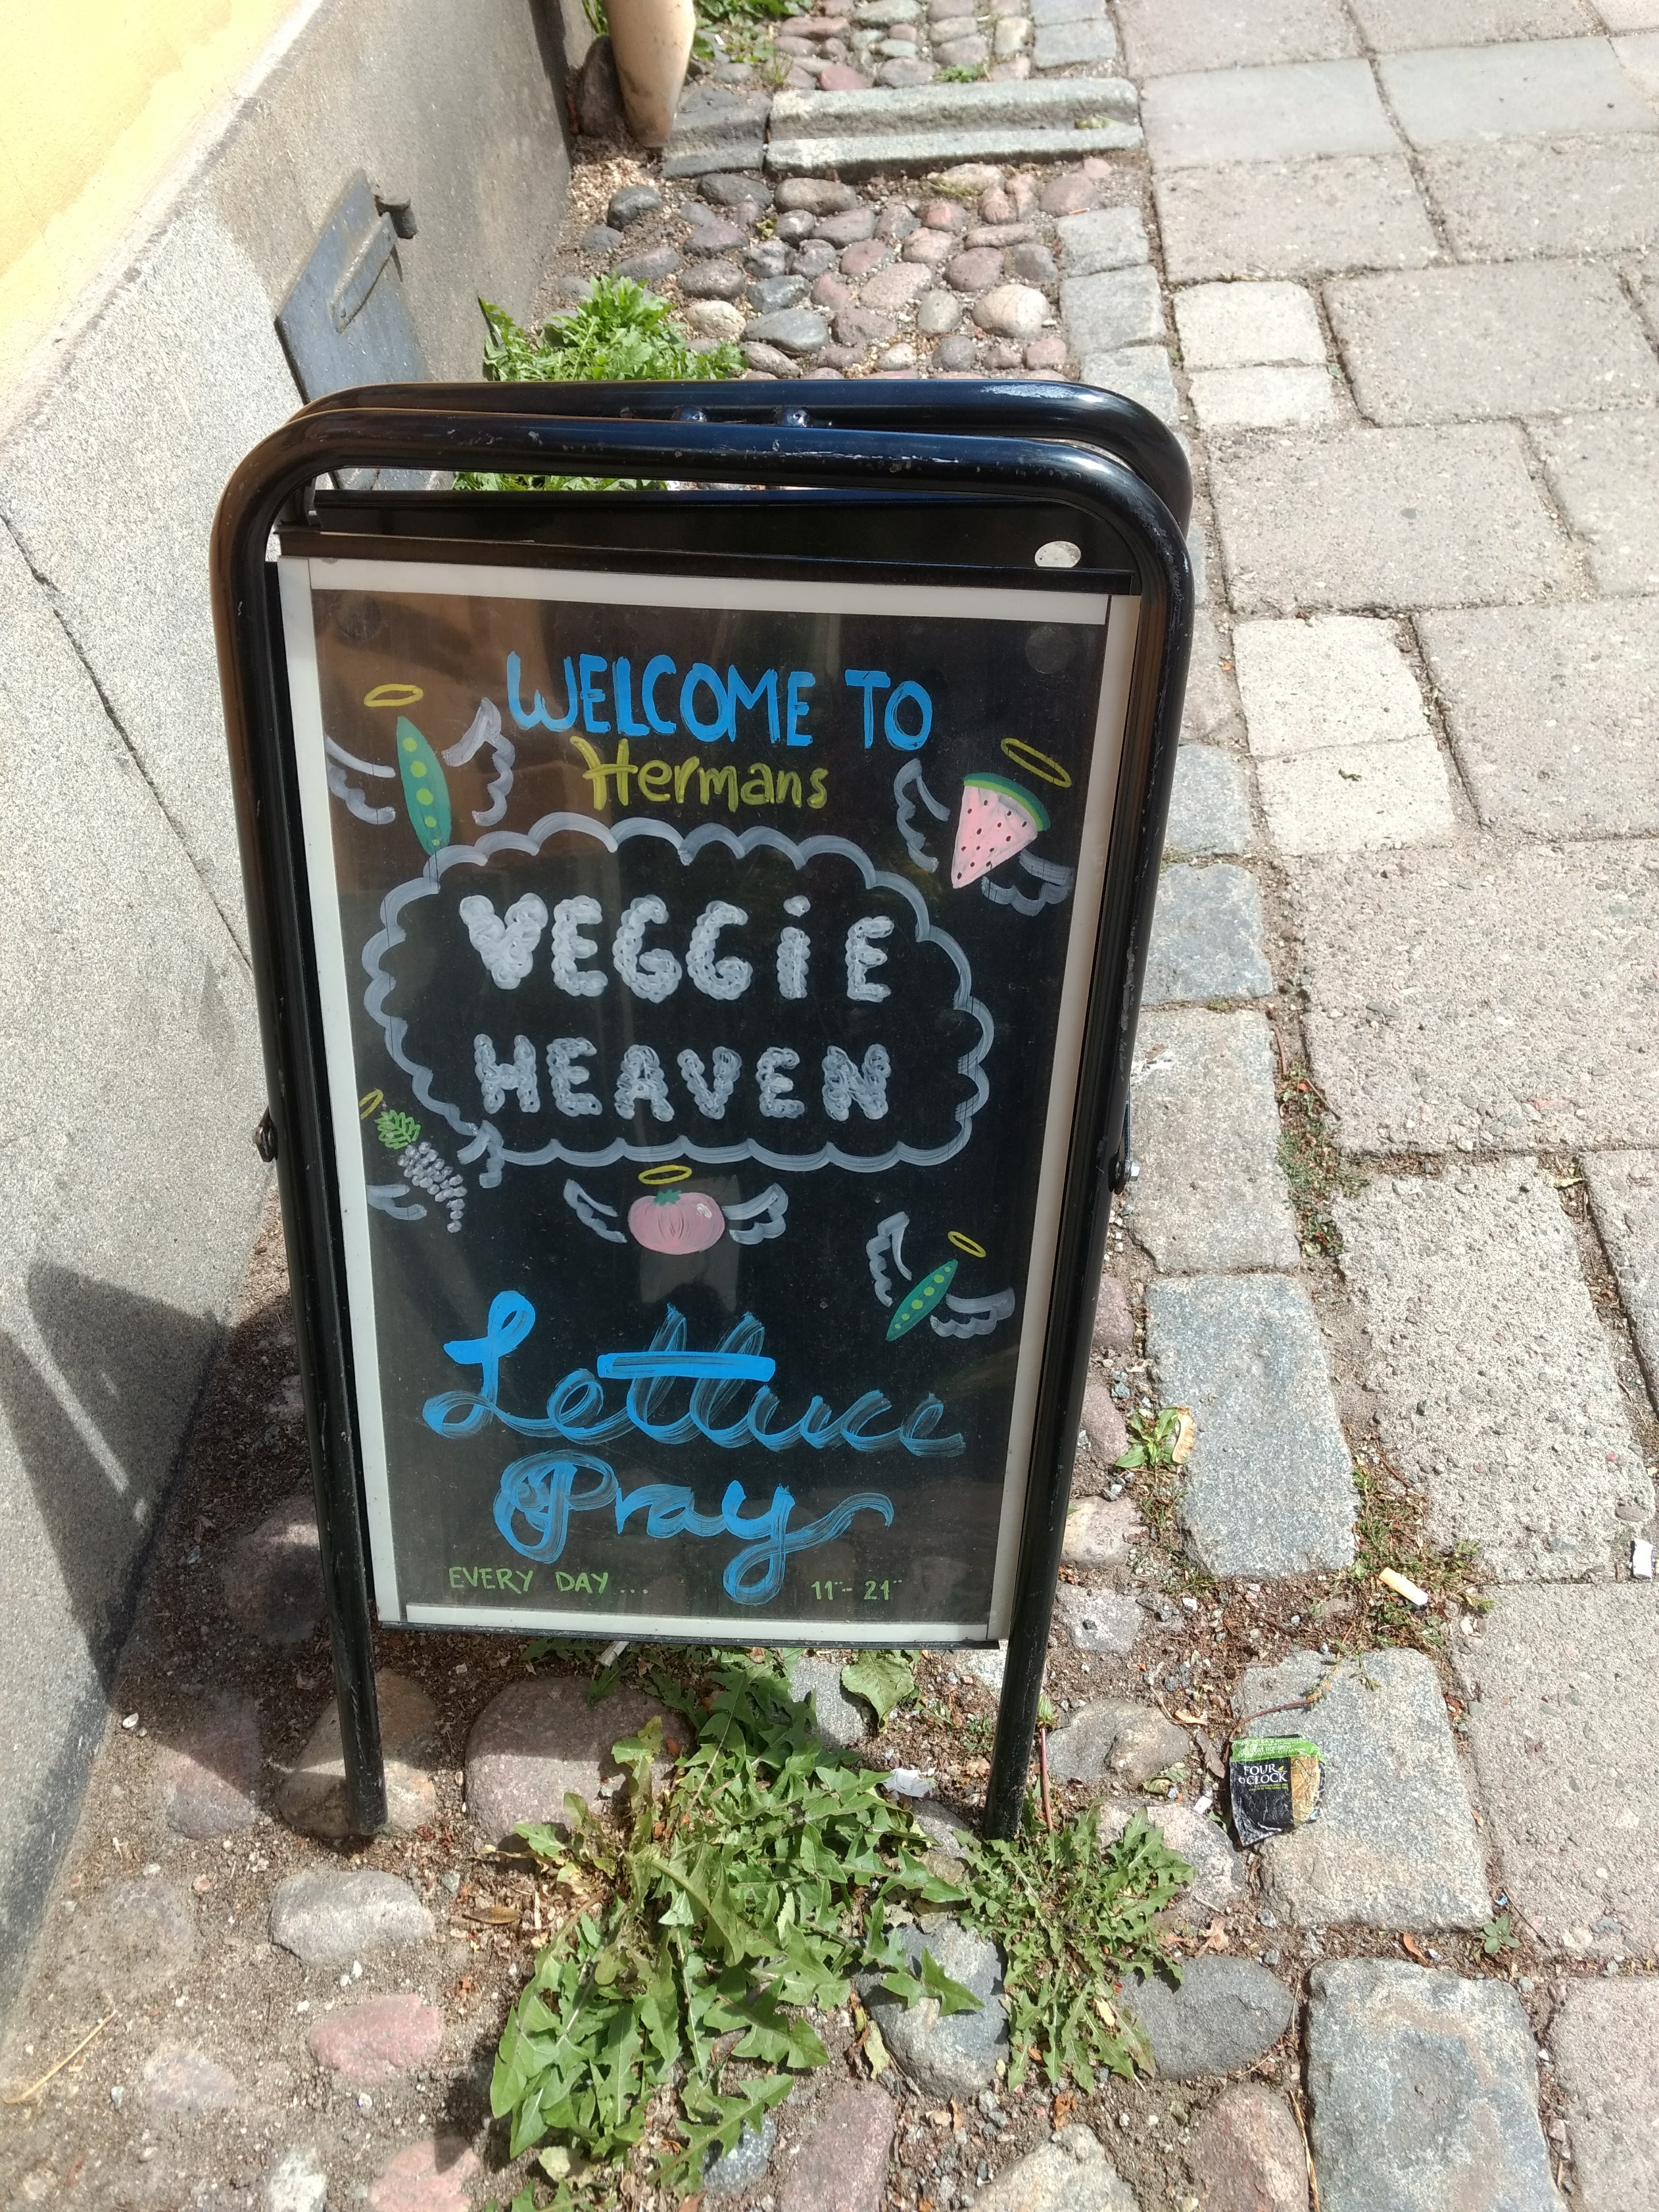 WELCOME TO
Hermans
VEGGiE
HEAVEN
Lettuce
Pray
EVERY DAY... 11⁰⁰- 21⁰⁰
FOUR
O'CLOCK